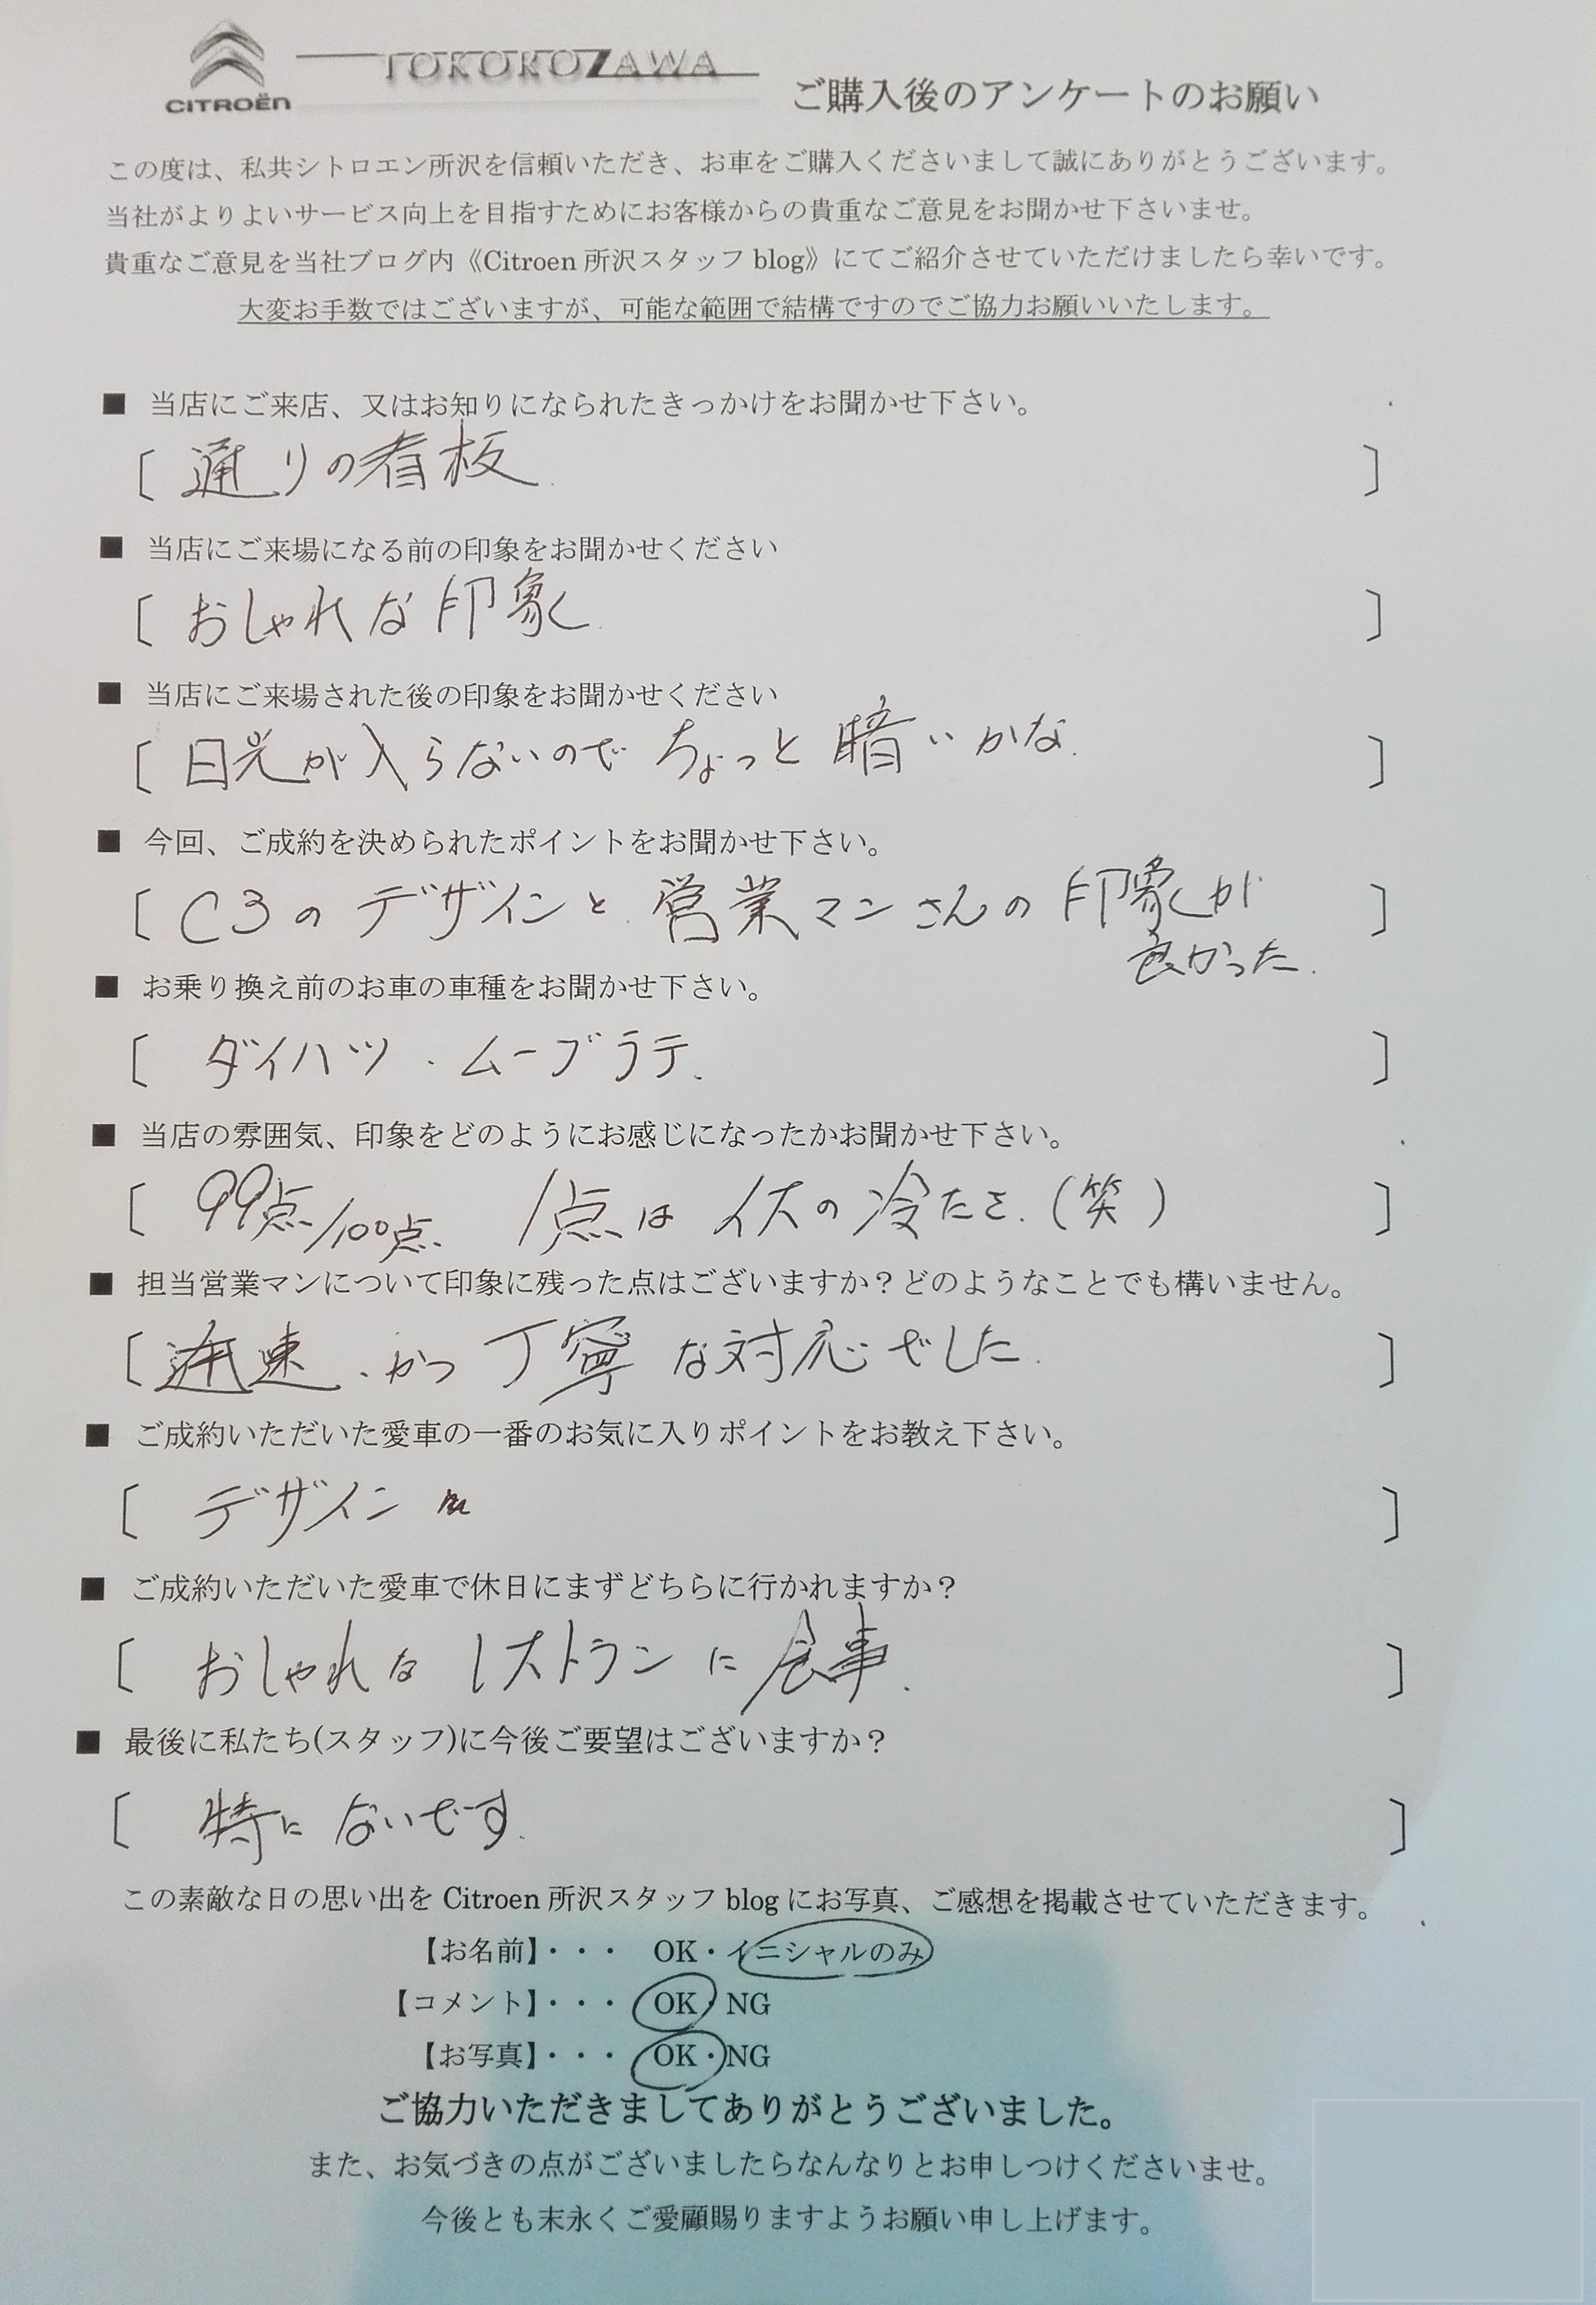 CITROËN
TOKOROZAWA
ご購入後のアンケートのお願い
この度は、私共シトロエン所沢を信頼いただき、お車をご購入くださいまして誠にありがとうございます。
当社がよりよいサービス向上を目指すためにお客様からの貴重なご意見をお聞かせ下さいませ。
貴重なご意見を当社ブログ内《Citroen 所沢スタッフ blog》にてご紹介させていただけましたら幸いです。
大変お手数ではございますが、可能な範囲で結構ですのでご協力お願いいたします。
■ 当店にご来店、又はお知りになられたきっかけをお聞かせ下さい。
〔 通りの看板 〕
■ 当店にご来場になる前の印象をお聞かせください
〔 おしゃれな印象 〕
■ 当店にご来場された後の印象をお聞かせください
〔 日光が入らないので ちょっと暗いかな. 〕
■ 今回、ご成約を決められたポイントをお聞かせ下さい。
〔 C3のデザインと営業マンさんの印象が 〕
良かった.
■ お乗り換え前のお車の車種をお聞かせ下さい。
〔 ダイハツ・ムーブラテ. 〕
■ 当店の雰囲気、印象をどのようにお感じになったかお聞かせ下さい。
〔 99点/100点. 1点はイスの冷たさ.(笑) 〕
■ 担当営業マンについて印象に残った点はございますか？どのようなことでも構いません。
〔 迅速.かつ丁寧な対応でした. 〕
■ ご成約いただいた愛車の一番のお気に入りポイントをお教え下さい。
〔 デザイン 〕
■ ご成約いただいた愛車で休日にまずどちらに行かれますか？
〔 おしゃれなレストランに食事. 〕
■ 最後に私たち(スタッフ)に今後ご要望はございますか？
〔 特にないです. 〕
この素敵な日の思い出を Citroen 所沢スタッフ blog にお写真、ご感想を掲載させていただきます。
【お名前】・・・ OK・イニシャルのみ
【コメント】・・・ OK・NG
【お写真】・・・ OK・NG
ご協力いただきましてありがとうございました。
また、お気づきの点がございましたらなんなりとお申しつけくださいませ。
今後とも末永くご愛顧賜りますようお願い申し上げます。